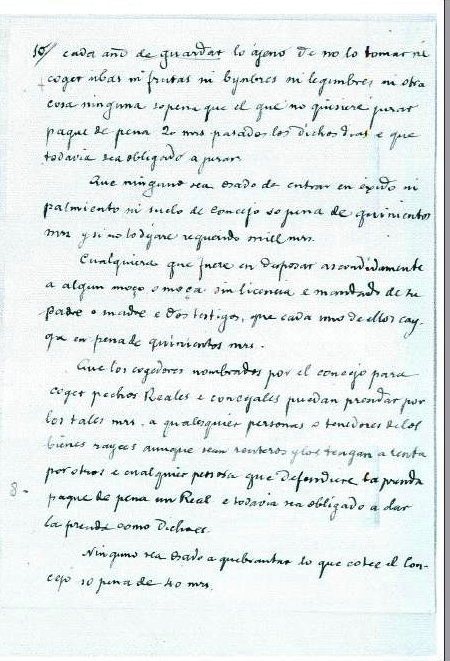 10// cada año de guardar lo ageno de no lo tomar ni
coger ubas ni frutas ni bynbres ni legimbres ni otra
cosa ninguna sopena que el que no quisiere jurar
pague de pena 20 mrs pasados los dichos dias e que
todavia sea obligado a jurar
Que ninguno sea osado de entrar en exido ni
palmiento ni suelo de concejo so pena de quinientos
mrs y si no lo dejare requerido mill mrs.
Cualquiera que fuere en desposar ascondidamente
a algun moço o moça sin licencia e mandado de su
padre o madre e dos testigos, que cada uno de ellos cay-
ga en pena de quinientos mrs.
Que los cogedores nombrados por el concejo para
coger pechos Reales e concejales puedan prendar por
los tales mrs. a qualesquier personas o tenedores de los
bienes rayces aunque sean renteros y los tengan a renta
por otros e cualquier persona que defendiere la prenda
8- pague de pena un Real e todavia sea obligado a dar
la prenda como dicho es.
Ninguno sea osado a quebrantar lo que cotee el Con-
cejo so pena de 40 mrs.